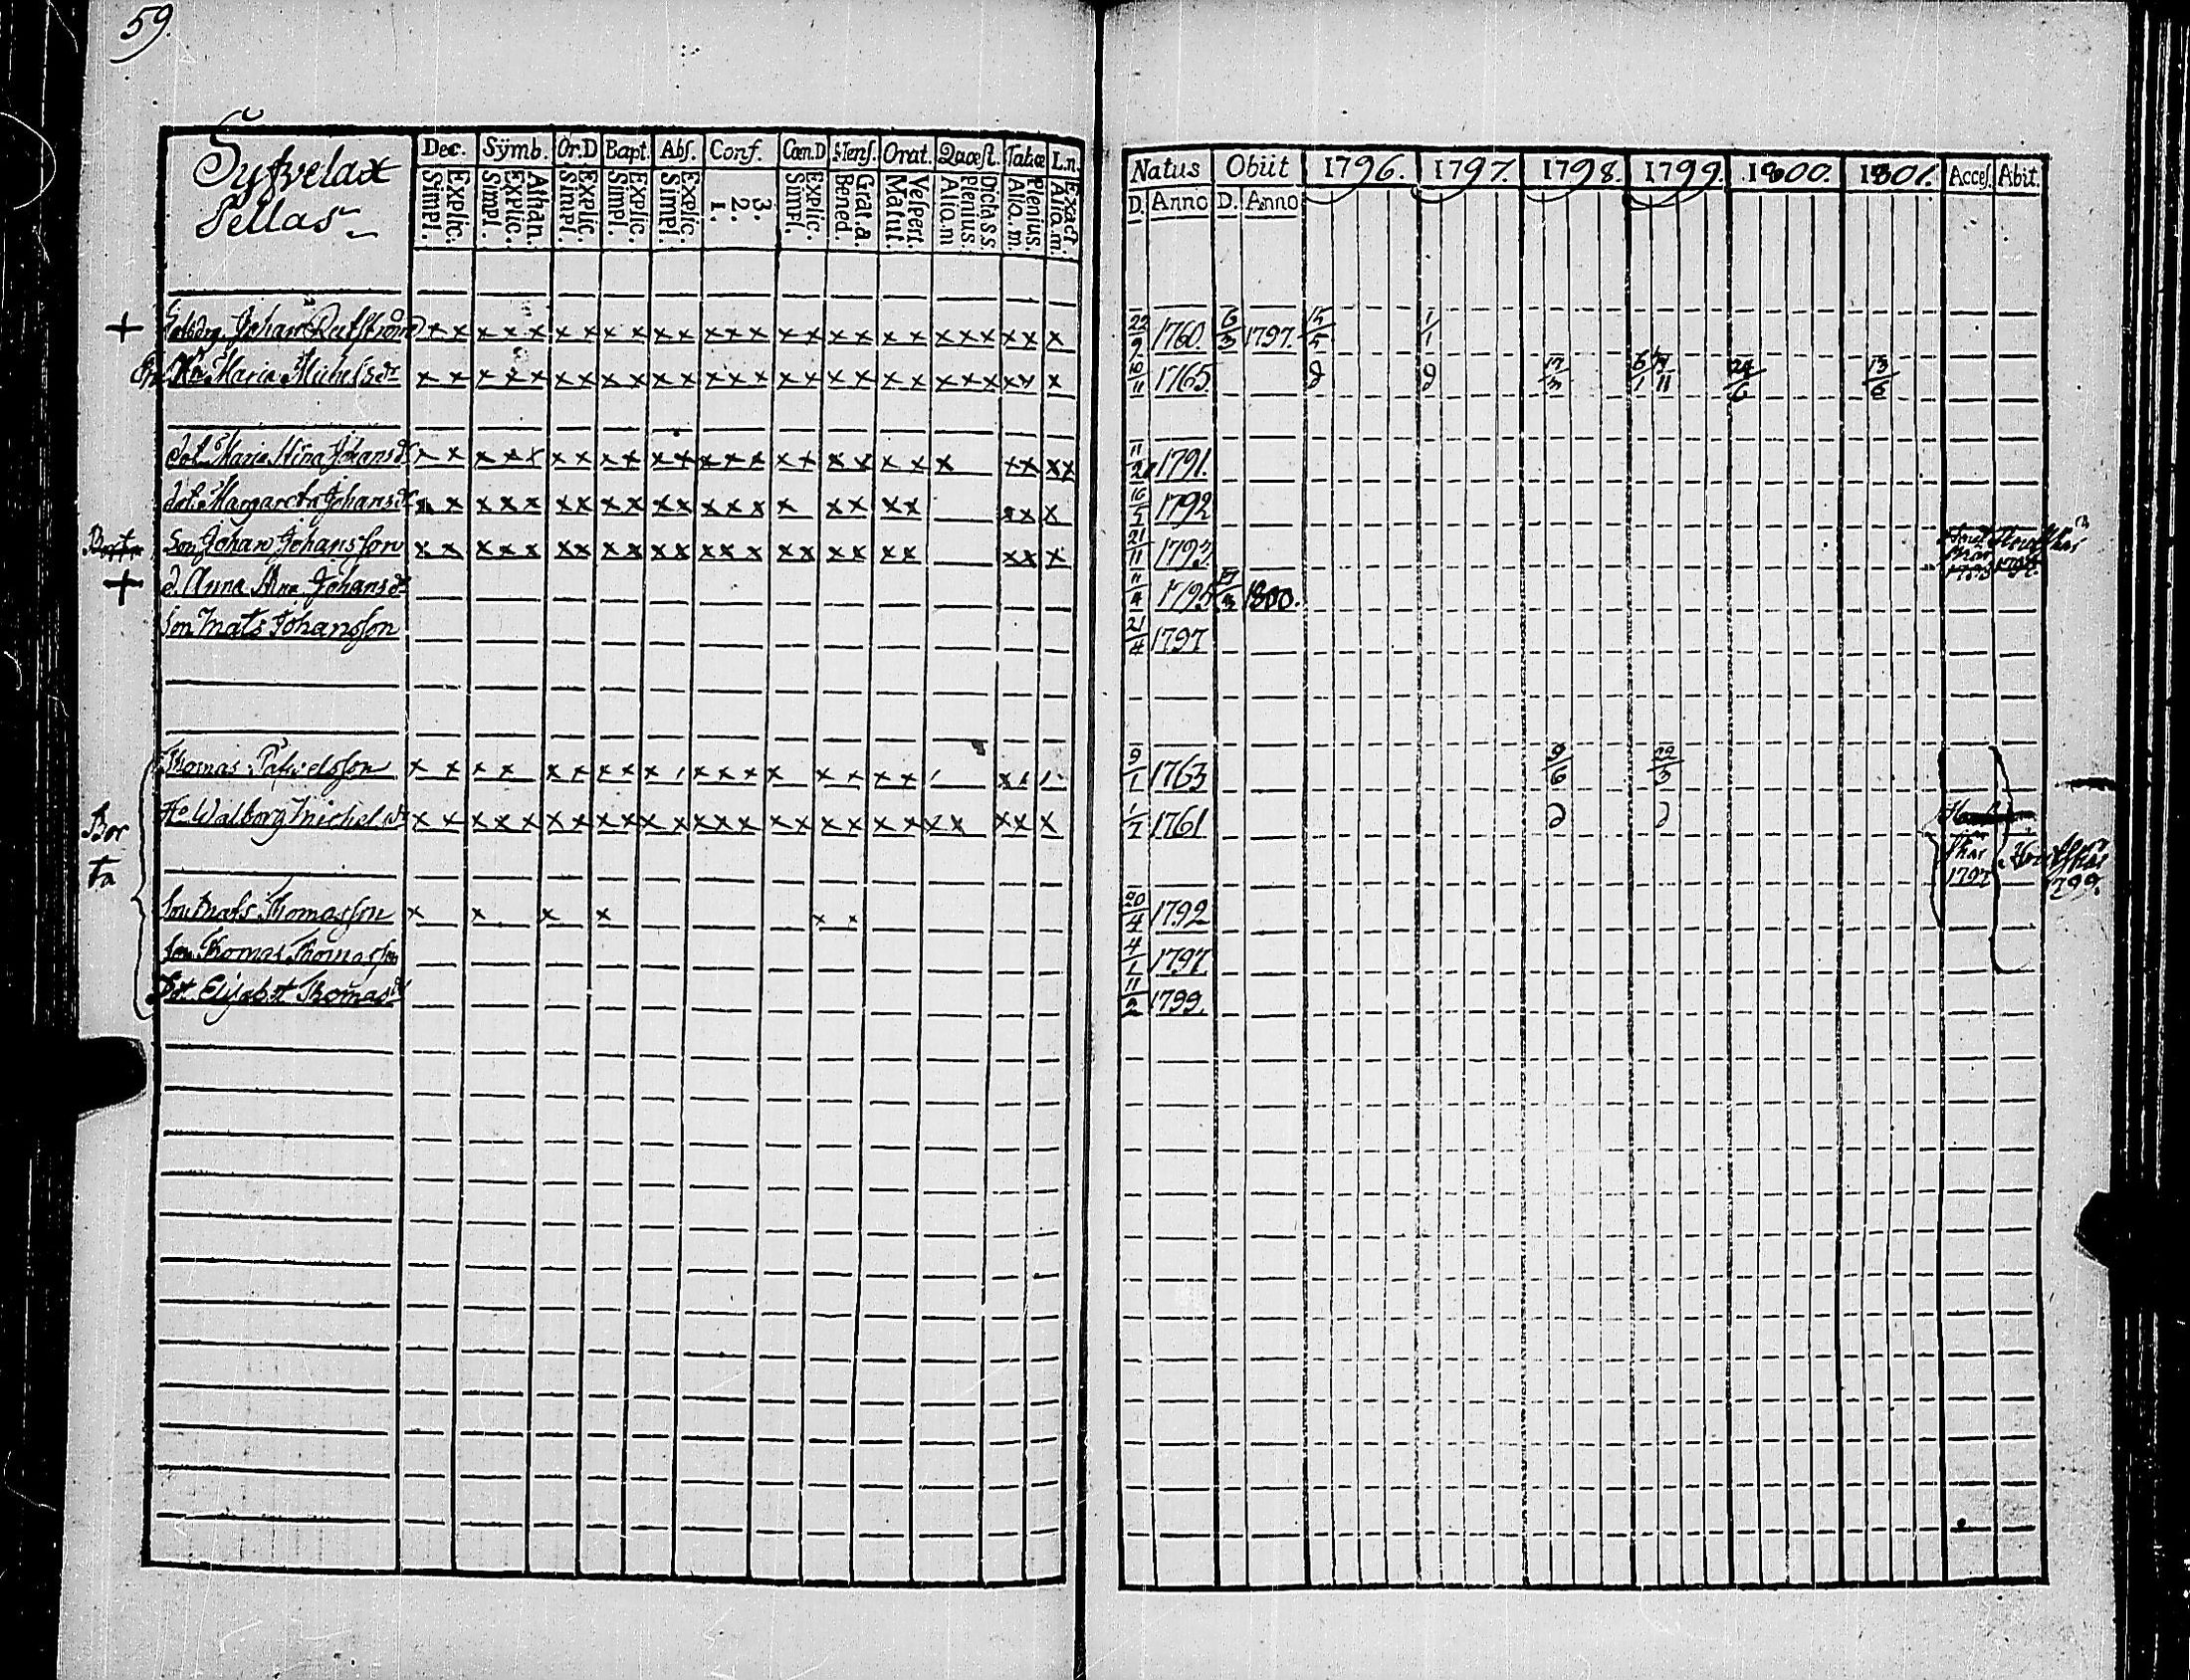 59.
Syfvelax
Pellas
Dec. Symb. Or.D Bapt. Abs. Conf. Cœn.D Mens. Orat. Quæst. Tabæ L.n.
Explic. Simpl. Athan. Explic. Simpl. Explic. Simpl. Explic. Simpl. Explic. Simpl. 3. 2. 1. Explic. Simpl. Grat. a. Bened. Vespert. Matut. Dicta s.s. Plenius. Aliq. m Plenius. Aliq. m. Exact. Aliq. m.
Natus Obiit 1796. 1797. 1798. 1799. 1800. 1801. Acces. Abit.
D. Anno D. Anno
+ Johan x x x x x x x x x x x x x x x x x x x x x x x x x 22/9 1760. 6/3 1797. 15/5 1/1
Maria Michelsdr x x x x x x x x x x x x x x x x x x x x x x x x x 10/11 1765 17/3 24/6 13/6
dot. Maria Stina Johansdr x x x x x x x x x x x x x x x x x x x x x x x x x 1791.
dot. Margareta Johansdr x x x x x x x x x x x x x x x x x x x x x x 1792
Borta Son Johan Johansson x x x x x x x x x x x x x x x x x x x x x x x 21/11 1793
+ d. Anna Johansdr 11/4 1795 1800.
Son Mats Johansson 21/4 1797
Thomas Pahvelsson x x x x x x x x x x x x x x x x x x 9/1 1763 9/6 22/3
Bor
ta
H. Walborg Michelsdr x x x x x x x x x x x x x x x x x x x x x x x x x 1761
1797 1799.
Son Mats Thomasson x x x x x x 20/4 1792
Son Thomas Thomasson 4/1 1797
Dot. Elisabet Thomasdr 11/2 1799.